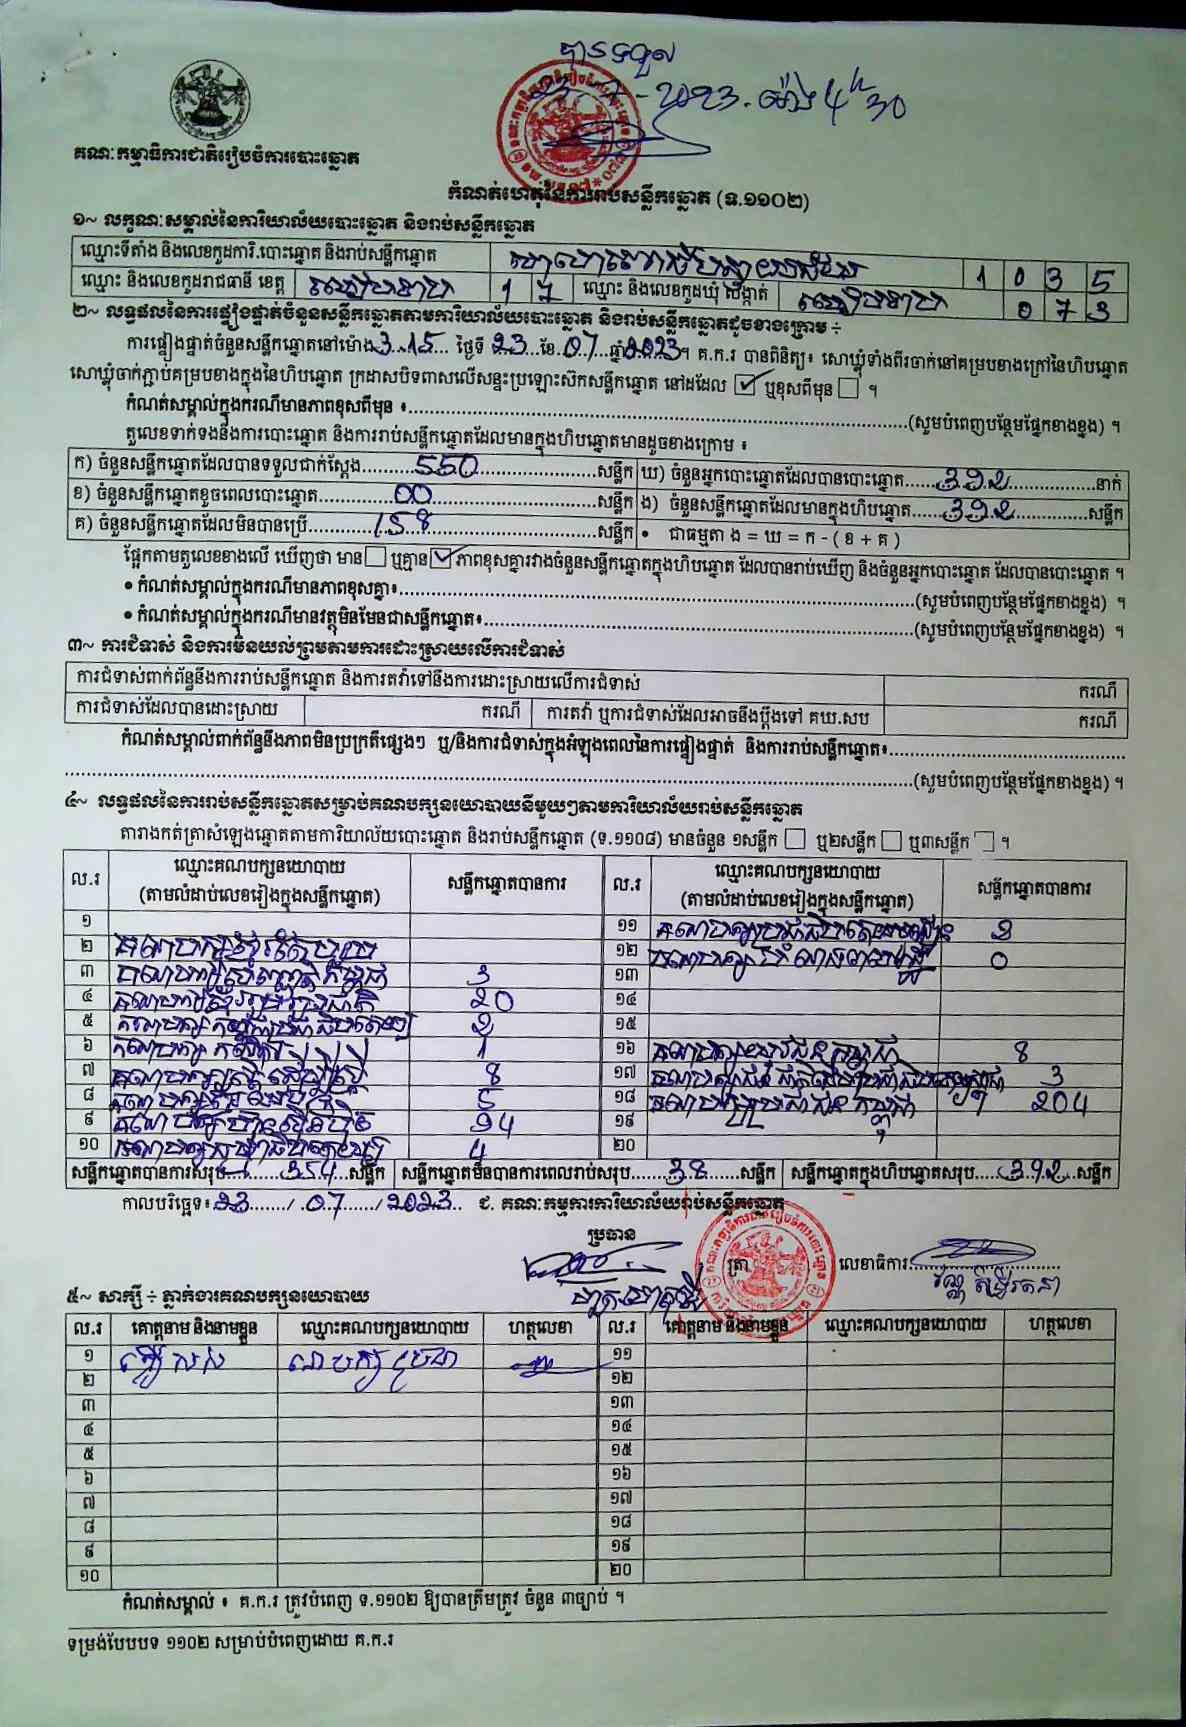 បានទទួល
23-7-2023. ម៉ោង 4h30
គណៈកម្មាធិការជាតិរៀបចំការបោះឆ្នោត
កំណត់ហេតុនៃការរាប់សន្លឹកឆ្នោត (ទ.១១០២)
១~ លក្ខណៈសម្គាល់នៃការិយាល័យបោះឆ្នោត និងរាប់សន្លឹកឆ្នោត
ឈ្មោះទីតាំង និងលេខកូដការិ.បោះឆ្នោត និងរាប់សន្លឹកឆ្នោត 1 0 3 5
ឈ្មោះ និងលេខកូដរាជធានី ខេត្ត សៀមរាប 1 7 ឈ្មោះ និងលេខកូដឃុំ សង្កាត់ សៀមរាប 0 7 3
២~ លទ្ធផលនៃការផ្ទៀងផ្ទាត់ចំនួនសន្លឹកឆ្នោតតាមការិយាល័យបោះឆ្នោត និងរាប់សន្លឹកឆ្នោតដូចខាងក្រោម ÷
ការផ្ទៀងផ្ទាត់ចំនួនសន្លឹកឆ្នោតនៅម៉ោង 3:15 ថ្ងៃទី 23 ខែ 07 ឆ្នាំ 2023 ។ គ.ក.រ បានពិនិត្យ៖ សោឃ្លុំទាំងពីរចាក់នៅគម្របខាងក្រៅនៃហិបឆ្នោត
សោឃ្លុំចាក់ភ្ជាប់គម្របខាងក្នុងនៃហិបឆ្នោត ក្រដាសបិទពាសលើសន្ទះប្រឡោះស៊កសន្លឹកឆ្នោត នៅដដែល ☑ ឬខុសពីមុន ☐ ។
កំណត់សម្គាល់ក្នុងករណីមានភាពខុសពីមុន ៖..........(សូមបំពេញបន្ថែមផ្នែកខាងខ្នង) ។
តួលេខទាក់ទងនឹងការបោះឆ្នោត និងការរាប់សន្លឹកឆ្នោតដែលមានក្នុងហិបឆ្នោតមានដូចខាងក្រោម ៖
ក) ចំនួនសន្លឹកឆ្នោតដែលបានទទួលជាក់ស្តែង 550 សន្លឹក ឃ) ចំនួនអ្នកបោះឆ្នោតដែលបានបោះឆ្នោត 392 នាក់
ខ) ចំនួនសន្លឹកឆ្នោតខូចពេលបោះឆ្នោត 00 សន្លឹក ង) ចំនួនសន្លឹកឆ្នោតដែលមានក្នុងហិបឆ្នោត 392 សន្លឹក
គ) ចំនួនសន្លឹកឆ្នោតដែលមិនបានប្រើ 158 សន្លឹក • ជាធម្មតា ង = ឃ = ក - ( ខ + គ )
ផ្អែកតាមតួលេខខាងលើ ឃើញថា មាន ☐ ឬគ្មាន ☑ ភាពខុសគ្នារវាងចំនួនសន្លឹកឆ្នោតក្នុងហិបឆ្នោត ដែលបានរាប់ឃើញ និងចំនួនអ្នកបោះឆ្នោត ដែលបានបោះឆ្នោត ។
• កំណត់សម្គាល់ក្នុងករណីមានភាពខុសគ្នា៖..........(សូមបំពេញបន្ថែមផ្នែកខាងខ្នង) ។
• កំណត់សម្គាល់ក្នុងករណីមានវត្ថុមិនមែនជាសន្លឹកឆ្នោត៖..........(សូមបំពេញបន្ថែមផ្នែកខាងខ្នង) ។
៣~ ការជំទាស់ និងការមិនយល់ព្រមតាមការដោះស្រាយលើការជំទាស់
ការជំទាស់ពាក់ព័ន្ធនឹងការរាប់សន្លឹកឆ្នោត និងការតវ៉ាទៅនឹងការដោះស្រាយលើការជំទាស់ ករណី
ការជំទាស់ដែលបានដោះស្រាយ ករណី ការតវ៉ា ឬការជំទាស់ដែលអាចនឹងប្តឹងទៅ គឃ.សប ករណី
កំណត់សម្គាល់ពាក់ព័ន្ធនឹងភាពមិនប្រក្រតីផ្សេងៗ ឬ/និងការជំទាស់ក្នុងអំឡុងពេលនៃការផ្ទៀងផ្ទាត់ និងការរាប់សន្លឹកឆ្នោត៖..........
..........(សូមបំពេញបន្ថែមផ្នែកខាងខ្នង) ។
៤~ លទ្ធផលនៃការរាប់សន្លឹកឆ្នោតសម្រាប់គណបក្សនយោបាយនីមួយៗតាមការិយាល័យរាប់សន្លឹកឆ្នោត
តារាងកត់ត្រាសំឡេងឆ្នោតតាមការិយាល័យបោះឆ្នោត និងរាប់សន្លឹកឆ្នោត (ទ.១១០៨) មានចំនួន ១សន្លឹក ☐ ឬ២សន្លឹក ☐ ឬ៣សន្លឹក ☐ ។
ល.រ ឈ្មោះគណបក្សនយោបាយ (តាមលំដាប់លេខរៀងក្នុងសន្លឹកឆ្នោត) សន្លឹកឆ្នោតបានការ ល.រ ឈ្មោះគណបក្សនយោបាយ (តាមលំដាប់លេខរៀងក្នុងសន្លឹកឆ្នោត) សន្លឹកឆ្នោតបានការ
១ ១១ 2
២ គណបក្ស ១២ គណបក្ស 0
៣ គណបក្ស 3 ១៣
៤ គណបក្ស 20 ១៤
៥ គណបក្ស 2 ១៥
៦ គណបក្ស 1 ១៦ គណបក្សយុវជនកម្ពុជា 8
៧ គណបក្ស 8 ១៧ គណបក្ស 3
៨ គណបក្ស 5 ១៨ គណបក្សប្រជាជនកម្ពុជា 204
៩ គណបក្សហ៊្វុនស៊ិនប៉ិច 94 ១៩
១០ គណបក្ស 4 ២០
សន្លឹកឆ្នោតបានការសរុប 354 សន្លឹក សន្លឹកឆ្នោតមិនបានការពេលរាប់សរុប 38 សន្លឹក សន្លឹកឆ្នោតក្នុងហិបឆ្នោតសរុប 392 សន្លឹក
កាលបរិច្ឆេទ៖ 23 / 07 / 2023 ជ. គណៈកម្មការការិយាល័យរាប់សន្លឹកឆ្នោត
ប្រធាន ត្រា លេខាធិការ
៥~ សាក្សី ÷ ភ្នាក់ងារគណបក្សនយោបាយ
ល.រ គោត្តនាម និងនាមខ្លួន ឈ្មោះគណបក្សនយោបាយ ហត្ថលេខា ល.រ គោត្តនាម និងនាមខ្លួន ឈ្មោះគណបក្សនយោបាយ ហត្ថលេខា
១ ១១
២ ១២
៣ ១៣
៤ ១៤
៥ ១៥
៦ ១៦
៧ ១៧
៨ ១៨
៩ ១៩
១០ ២០
កំណត់សម្គាល់ ៖ គ.ក.រ ត្រូវបំពេញ ទ.១១០២ ឱ្យបានត្រឹមត្រូវ ចំនួន ៣ច្បាប់ ។
ទម្រង់បែបបទ ១១០២ សម្រាប់បំពេញដោយ គ.ក.រ